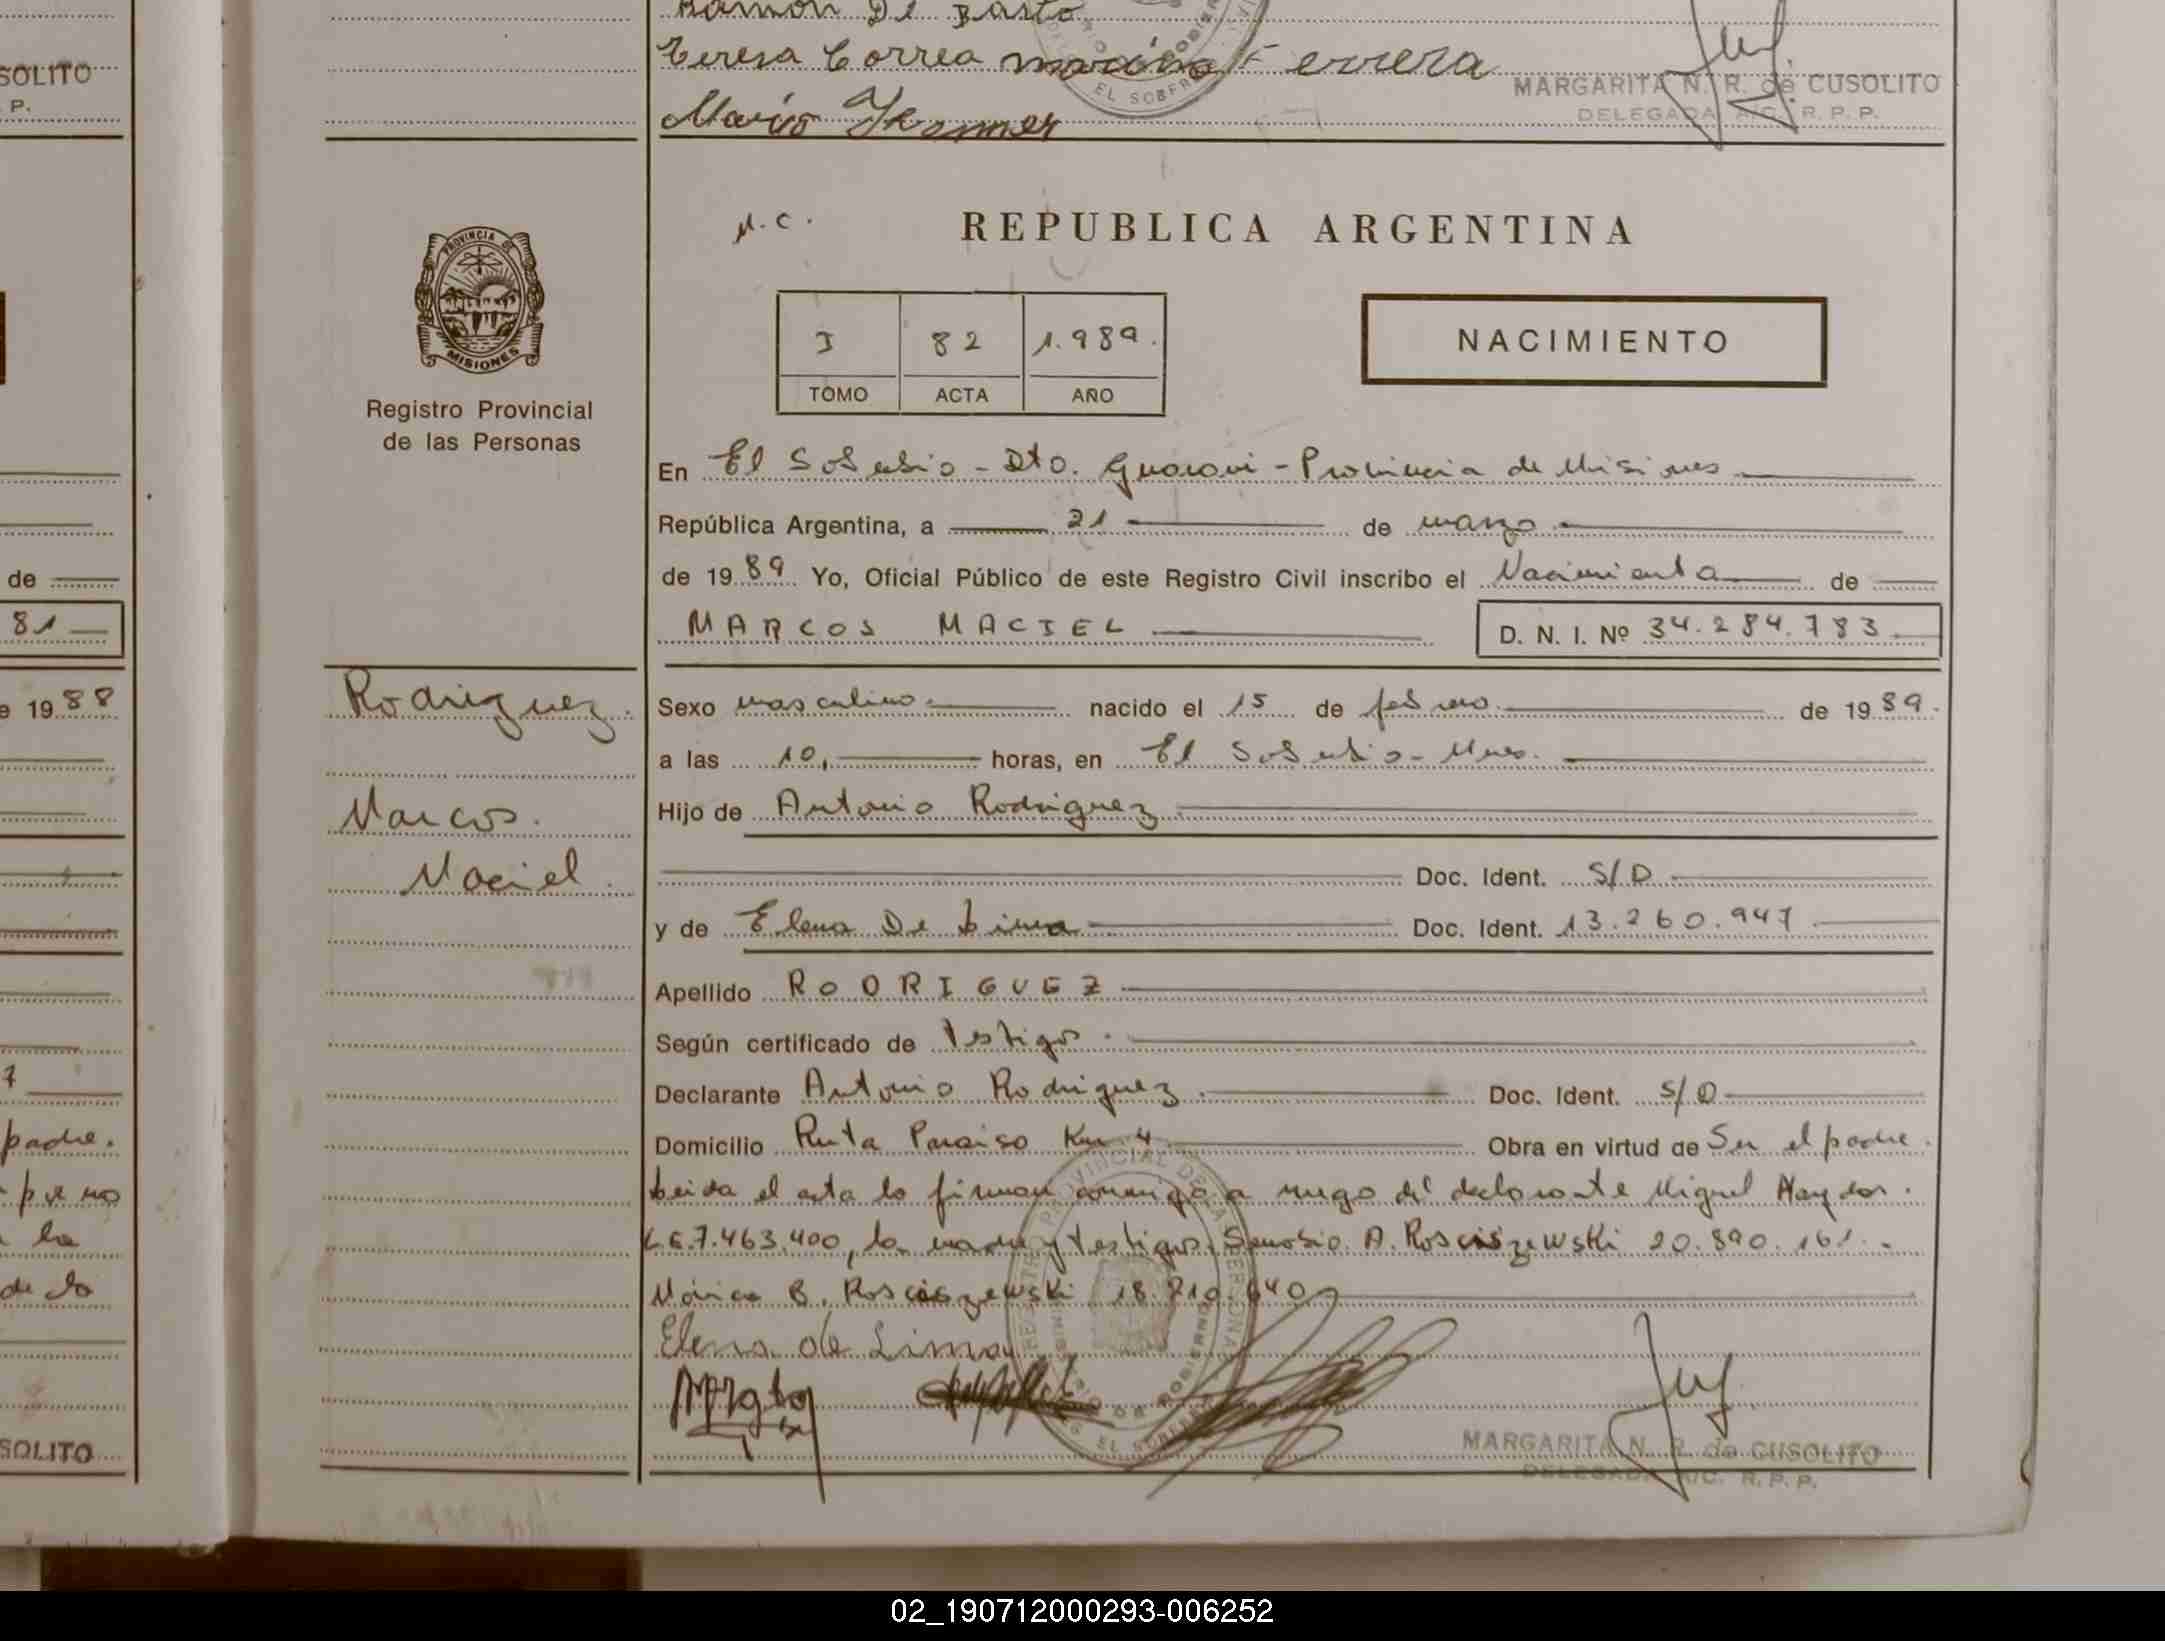 Ramón De Basto
Teresa Correa Ferrera
Mario
MARGARITA N. R. de CUSOLITO
DELEGADA A/C. R. P. P.
SOLITO
P.
N.C.
REPUBLICA ARGENTINA
PROVINCIA DE
MISIONES
Registro Provincial
de las Personas
I 82 1.989.
TOMO ACTA AÑO
NACIMIENTO
En El Soberbio - Dto. Guarani - Provincia de Misiones
República Argentina, a 21 de marzo
de 1989 Yo, Oficial Público de este Registro Civil inscribo el Nacimiento de
MARCOS MACIEL D. N. I. Nº 34.284.783
de
81
Rodriguez.
Marcos.
Maciel.
Sexo masculino nacido el 15 de febrero de 1989.
a las 10, horas, en El Soberbio - Mnes.
Hijo de Antonio Rodriguez
Doc. Ident. S/D
y de Elena De Lima Doc. Ident. 13.260.947
Apellido RODRIGUEZ
Según certificado de testigos.
Declarante Antonio Rodriguez. Doc. Ident. S/D
Domicilio Ruta Paraiso Km 4 Obra en virtud de Ser el padre.
Leida el acta lo firman conmigo a ruego del declarante Miguel
L.E.7.463.400, la madre y testigos. A. Rosciszewski 20.890.161.-
Mónica B. Rosciszewski 18.210.640
Elena de Lima
MARGARITA N. R. de CUSOLITO
DELEGADA A/C. R. P. P.
e 1988
7
padre.
la
de lo
SOLITO
02_190712000293-006252